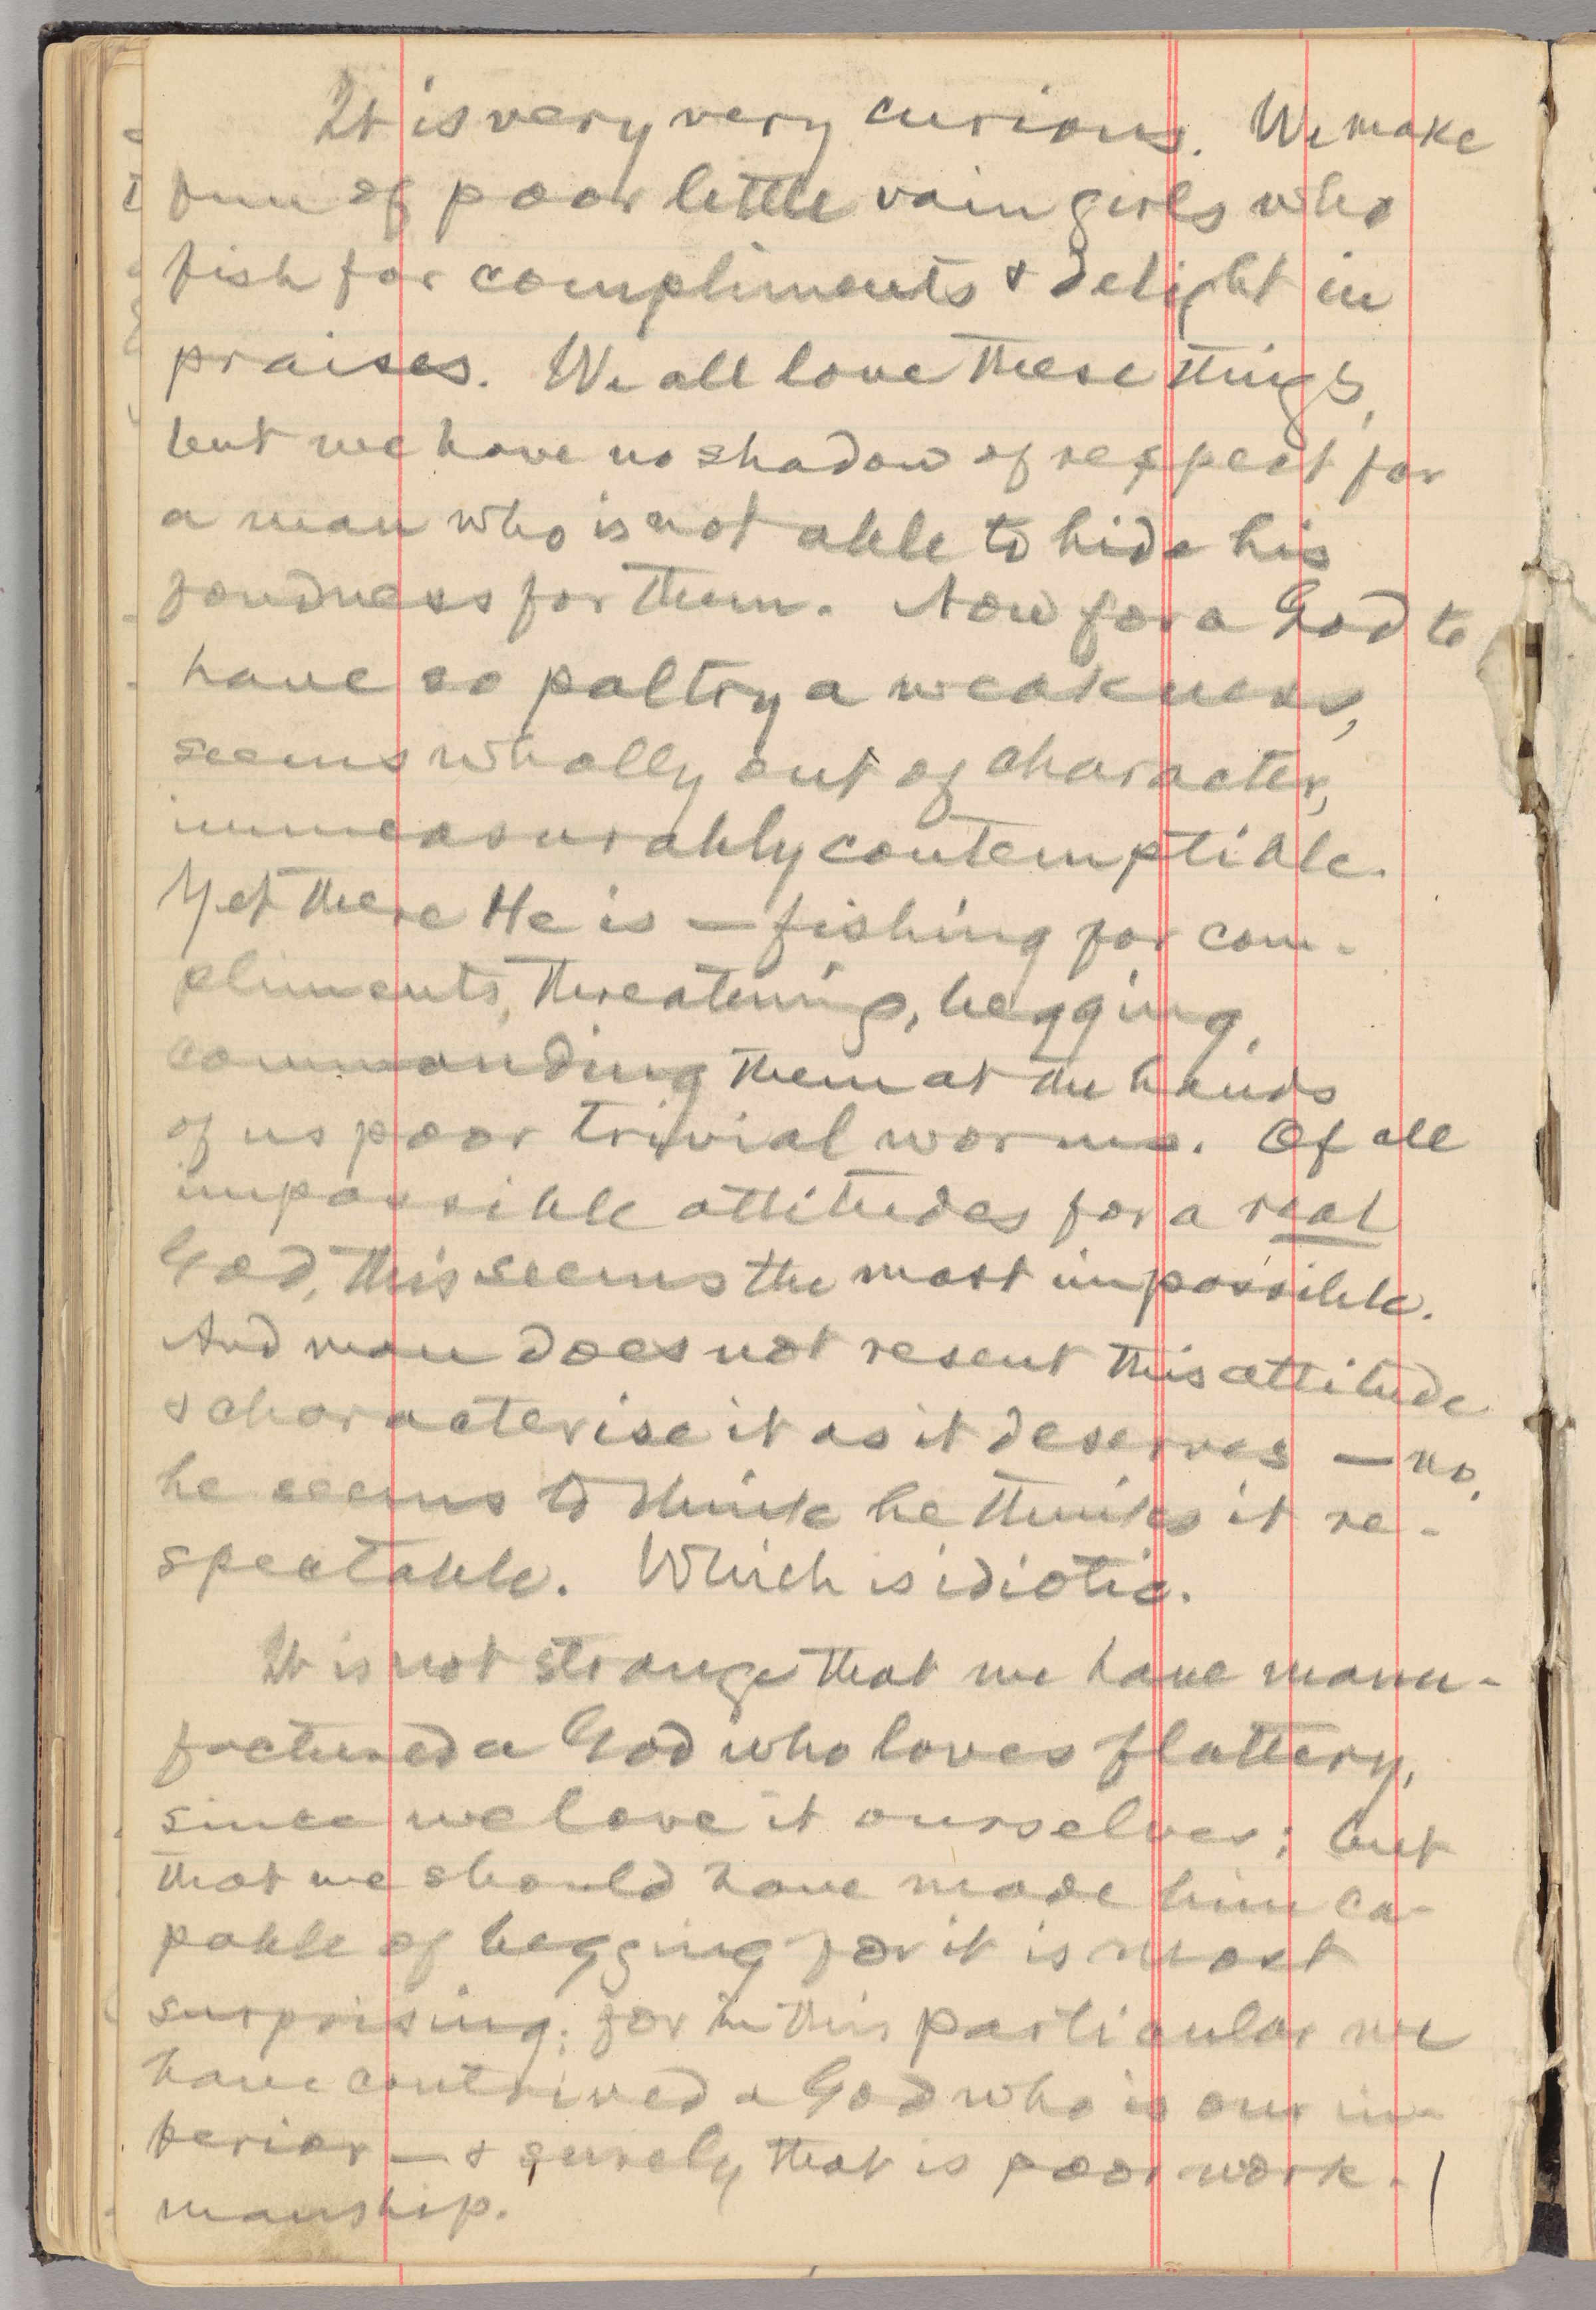 It is very very curious. We make
fun of poor little vain girls who
fish for compliments & delight in
praises. We all love these things,
but we have no shadow of respect for
a man who is not able to hide his
fondness for them. Now for a God to
have so paltry a weakness,
seems wholly out of character,
immeasurably contemptible.
Yet there He is — fishing for com-
pliments, threatening, begging,
commanding them at the hands
of us poor trivial worms. Of all
impossible attitudes for a real
God, this seems the most impossible.
And man does not resent this attitude
& characterise it as it deserves — no,
he seems to think he thinks it re-
spectable. Which is idiotic.
It is not strange that we have manu-
factured a God who loves flattery,
since we love it ourselves; but
that we should have made him ca-
pable of begging for it is most
surprising; for in this particular we
have contrived a God who is our in-
ferior — & surely that is poor work-
manship.